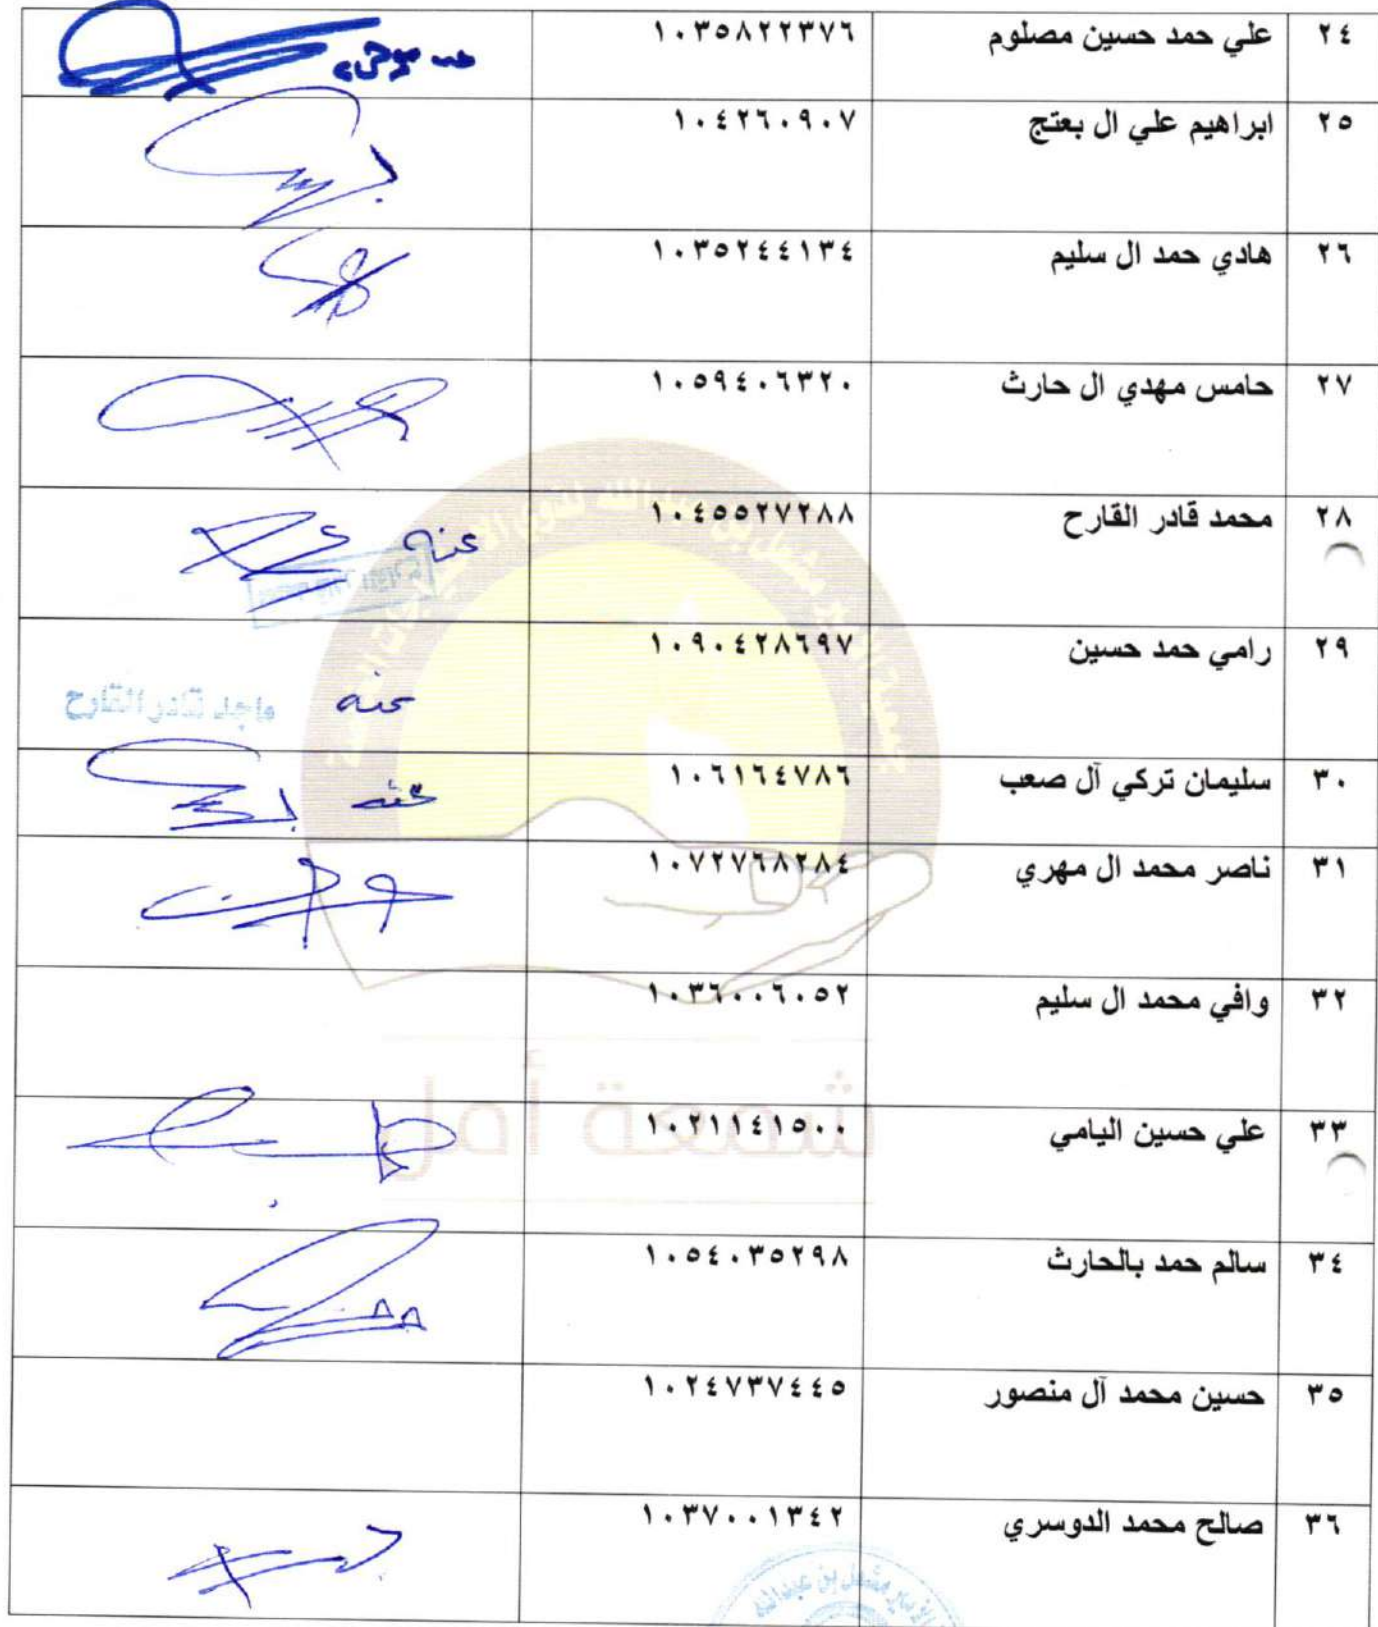 ٢٤ علي حمد حسين مصلوم ١٠٣٥٨٢٢٣٧٦
٢٥ ابراهيم علي ال بعتج ١٠٤٢٦٠٩٠٧
٢٦ هادي حمد ال سليم ١٠٣٥٢٤٤١٣٤
٢٧ حامس مهدي ال حارث ١٠٥٩٤٠٦٣٢٠
٢٨ محمد قادر القارح ١٠٤٥٥٢٧٢٨٨ عنه
٢٩ رامي حمد حسين ١٠٩٠٤٢٨٦٩٧ عنه
ماجد قادر القارح
٣٠ سليمان تركي آل صعب ١٠٦١٦٤٧٨٦ عنه
٣١ ناصر محمد ال مهري ١٠٧٢٧٦٨٢٨٤
٣٢ وافي محمد ال سليم ١٠٣٦٠٠٦٠٥٢
شمعة أمل
٣٣ علي حسين اليامي ١٠٢١١٤١٥٠٠
٣٤ سالم حمد بالحارث ١٠٥٤٠٣٥٢٩٨
٣٥ حسين محمد آل منصور ١٠٢٤٧٣٧٤٤٥
٣٦ صالح محمد الدوسري ١٠٣٧٠٠١٣٤٢
الأمير مشعل بن عبدالله